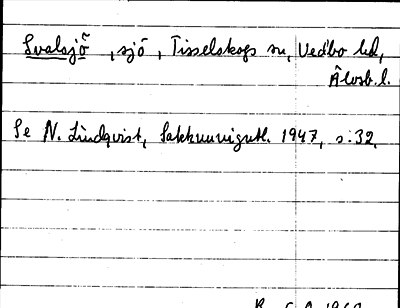 Svalsjö, sjö, Tisselskogs sn, Vedbo hd,
Älvsb. l.
Se N. Lindqvist, 1947, s. 32.